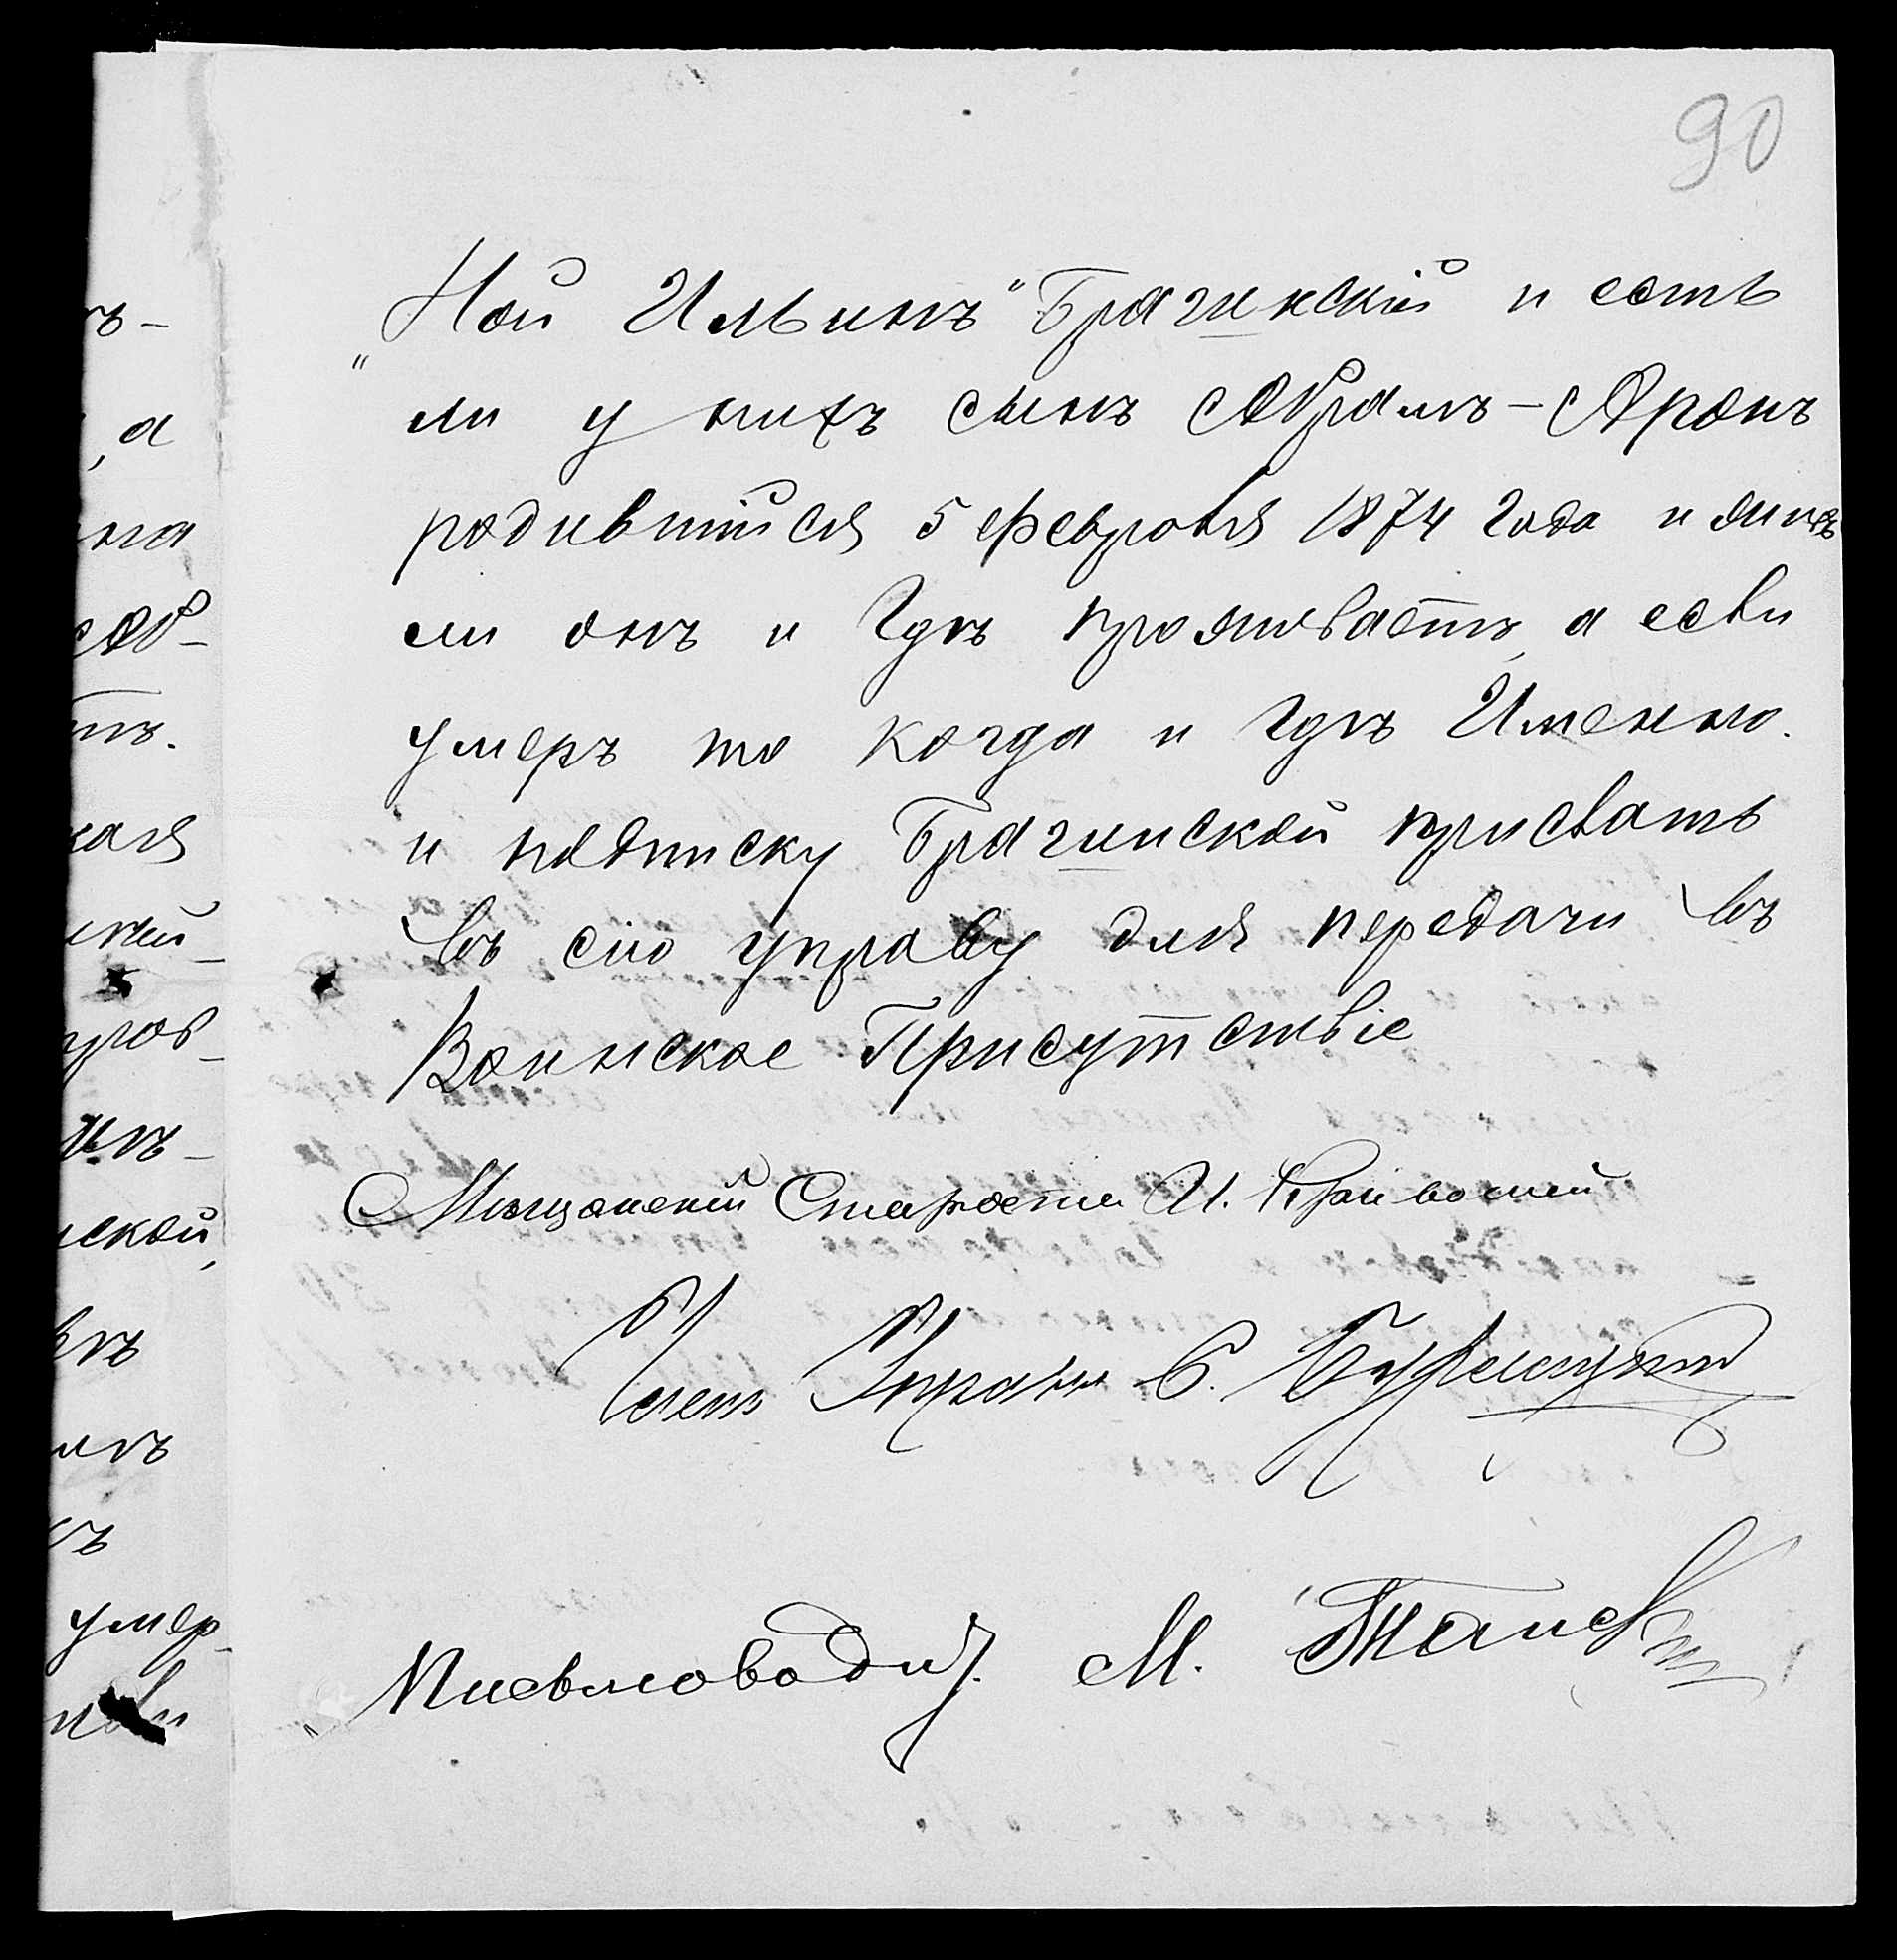 90
ъ-
„Ной Ильинъ“ Брагинскій и есть
, а
ли у нихъ сынъ Абрамъ-Аронъ
на
родившійся 5 февроля 1874 года и живъ
Аб-
ли онъ и гдѣ проживаетъ, а если
тъ.
умеръ то когда и гдѣ Именно.
кая
и подписку Брагинской прислать
въ сію управу для передачи въ
Воинское Присутствіе
нъ-
ской,
Мѣщанскій Староста И.
Членъ Управы Б.
умер-
Письмоводит. М.